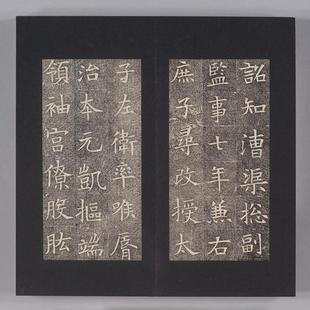 詔知漕渠揔副
監事七年兼右
庶子尋改授太
子左衛率喉脣
治本元凱摳端
領袖宫僚股肱